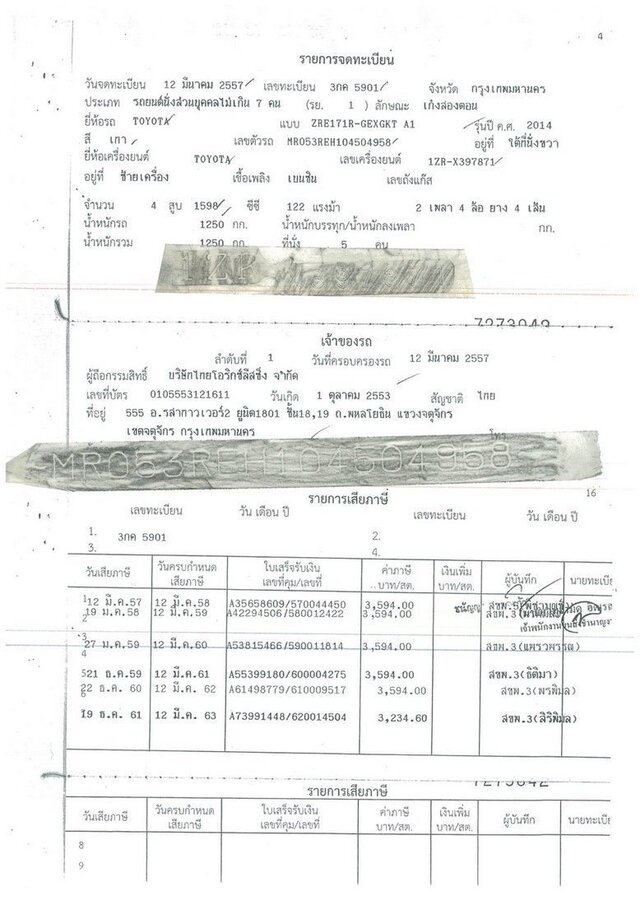 4
รายการจดทะเบียน
วันจดทะเบียน 12 มีนาคม 2557 เลขทะเบียน 3กค 5901 จังหวัด กรุงเทพมหานคร
ประเภท รถยนต์นั่งส่วนบุคคลไม่เกิน 7 คน (รย. 1 ) ลักษณะ เก๋งสองตอน
ยี่ห้อรถ TOYOTA แบบ ZRE171R-GEXGKT A1 รุ่นปี ค.ศ. 2014
สี เทา เลขตัวรถ MR053REH104504958 อยู่ที่ ใต้ที่นั่งขวา
ยี่ห้อเครื่องยนต์ TOYOTA เลขเครื่องยนต์ 1ZR-X397871
อยู่ที่ ซ้ายเครื่อง เชื้อเพลิง เบนซิน เลขถังแก๊ส
จำนวน 4 สูบ 1598 ซีซี 122 แรงม้า 2 เพลา 4 ล้อ ยาง 4 เส้น
น้ำหนักรถ 1250 กก. น้ำหนักบรรทุก/น้ำหนักลงเพลา กก.
น้ำหนักรวม 1250 กก. ที่นั่ง 5 คน
1ZR
7273042
เจ้าของรถ
ลำดับที่ 1 วันที่ครอบครองรถ 12 มีนาคม 2557
ผู้ถือกรรมสิทธิ์ บริษัทไทยโอริกซ์ลีสซิ่ง จำกัด
เลขที่บัตร 0105553121611 วันเกิด 1 ตุลาคม 2553 สัญชาติ ไทย
ที่อยู่ 555 อ.รสาทาวเวอร์2 ยูนิต1801 ชั้น18,19 ถ.พหลโยธิน แขวงจตุจักร
เขตจตุจักร กรุงเทพมหานคร โทร.
MR053REH104504958
16
รายการเสียภาษี
เลขทะเบียน วัน เดือน ปี เลขทะเบียน วัน เดือน ปี
1. 3กค 5901 2.
3. 4.
วันเสียภาษี วันครบกำหนดเสียภาษี ใบเสร็จรับเงิน เลขที่คุม/เลขที่ ค่าภาษี บาท/สต. เงินเพิ่ม บาท/สต. ผู้บันทึก นายทะเบี
1 12 มี.ค.57 12 มี.ค.58 A35658609/570044450 3,594.00
2 19 ม.ค.58 12 มี.ค.59 A42294506/580012422 3,594.00
3 27 ม.ค.59 12 มี.ค.60 A53815466/590011814 3,594.00 สขพ.3(แพรวพรรณ)
4
5 21 ธ.ค.59 12 มี.ค.61 A55399180/600004275 3,594.00 สขพ.3(ธิติมา)
6 22 ธ.ค. 60 12 มี.ค. 62 A61498779/610009517 3,594.00 สขพ.3(พรพิมล)
19 ธ.ค. 61 12 มี.ค. 63 A73991448/620014504 3,234.60 สขพ.3(สิริพิมล)
7273042
รายการเสียภาษี
วันเสียภาษี วันครบกำหนดเสียภาษี ใบเสร็จรับเงิน เลขที่คุม/เลขที่ ค่าภาษี บาท/สต. เงินเพิ่ม บาท/สต. ผู้บันทึก นายทะเบี
8
9